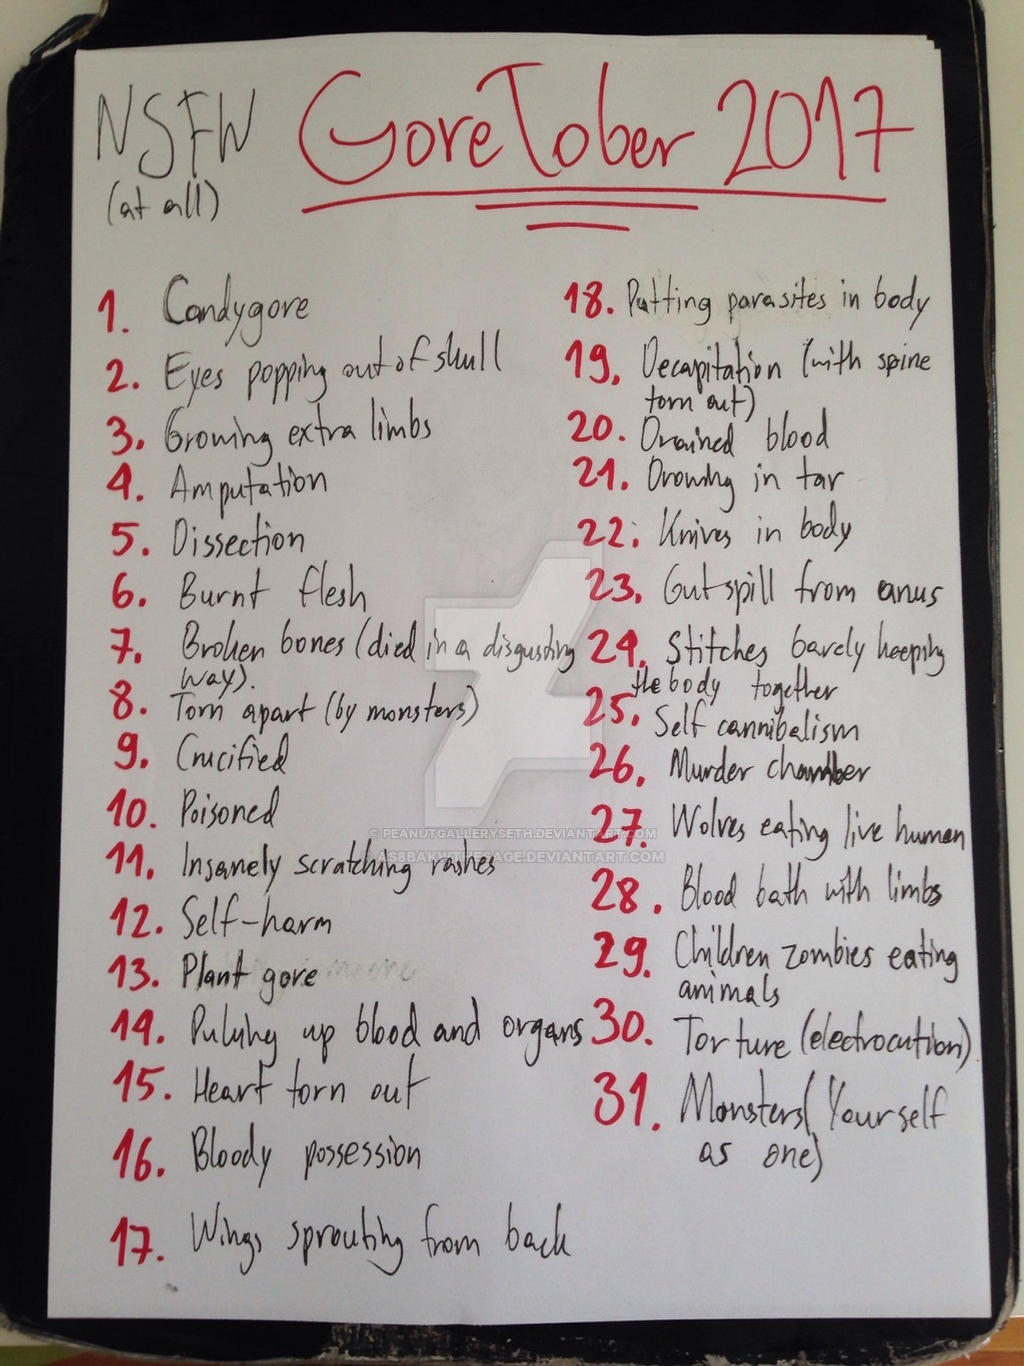 NSFW
(at all)
GoreTober 2017
1. Candygore
2. Eyes popping out of skull
3. Growing extra limbs
4. Amputation
5. Dissection
6. Burnt flesh
7. Broken bones (died in a disgusting
way).
8. Torn apart (by monsters)
9. Crucified
10. Poisoned
11. Insanely scratching rashes
12. Self-harm
13. Plant gore
14. Puking up blood and organs
15. Heart torn out
16. Bloody possession
17. Wings sprouting from back
18. Putting parasites in body
19. Decapitation (with spine
torn out)
20. Drained blood
21. Drowing in tar
22. Knives in body
23. Gut spill from anus
24. Stitches barely keeping
the body together
25. Self cannibalism
26. Murder chamber
27. Wolves eating live human
28. Blood bath with limbs
29. Children zombies eating
animals
30. Torture (electrocution).
31. Monsters (Yourself
as one)
© PEANUTGALLERYSETH.DEVIANTART.COM